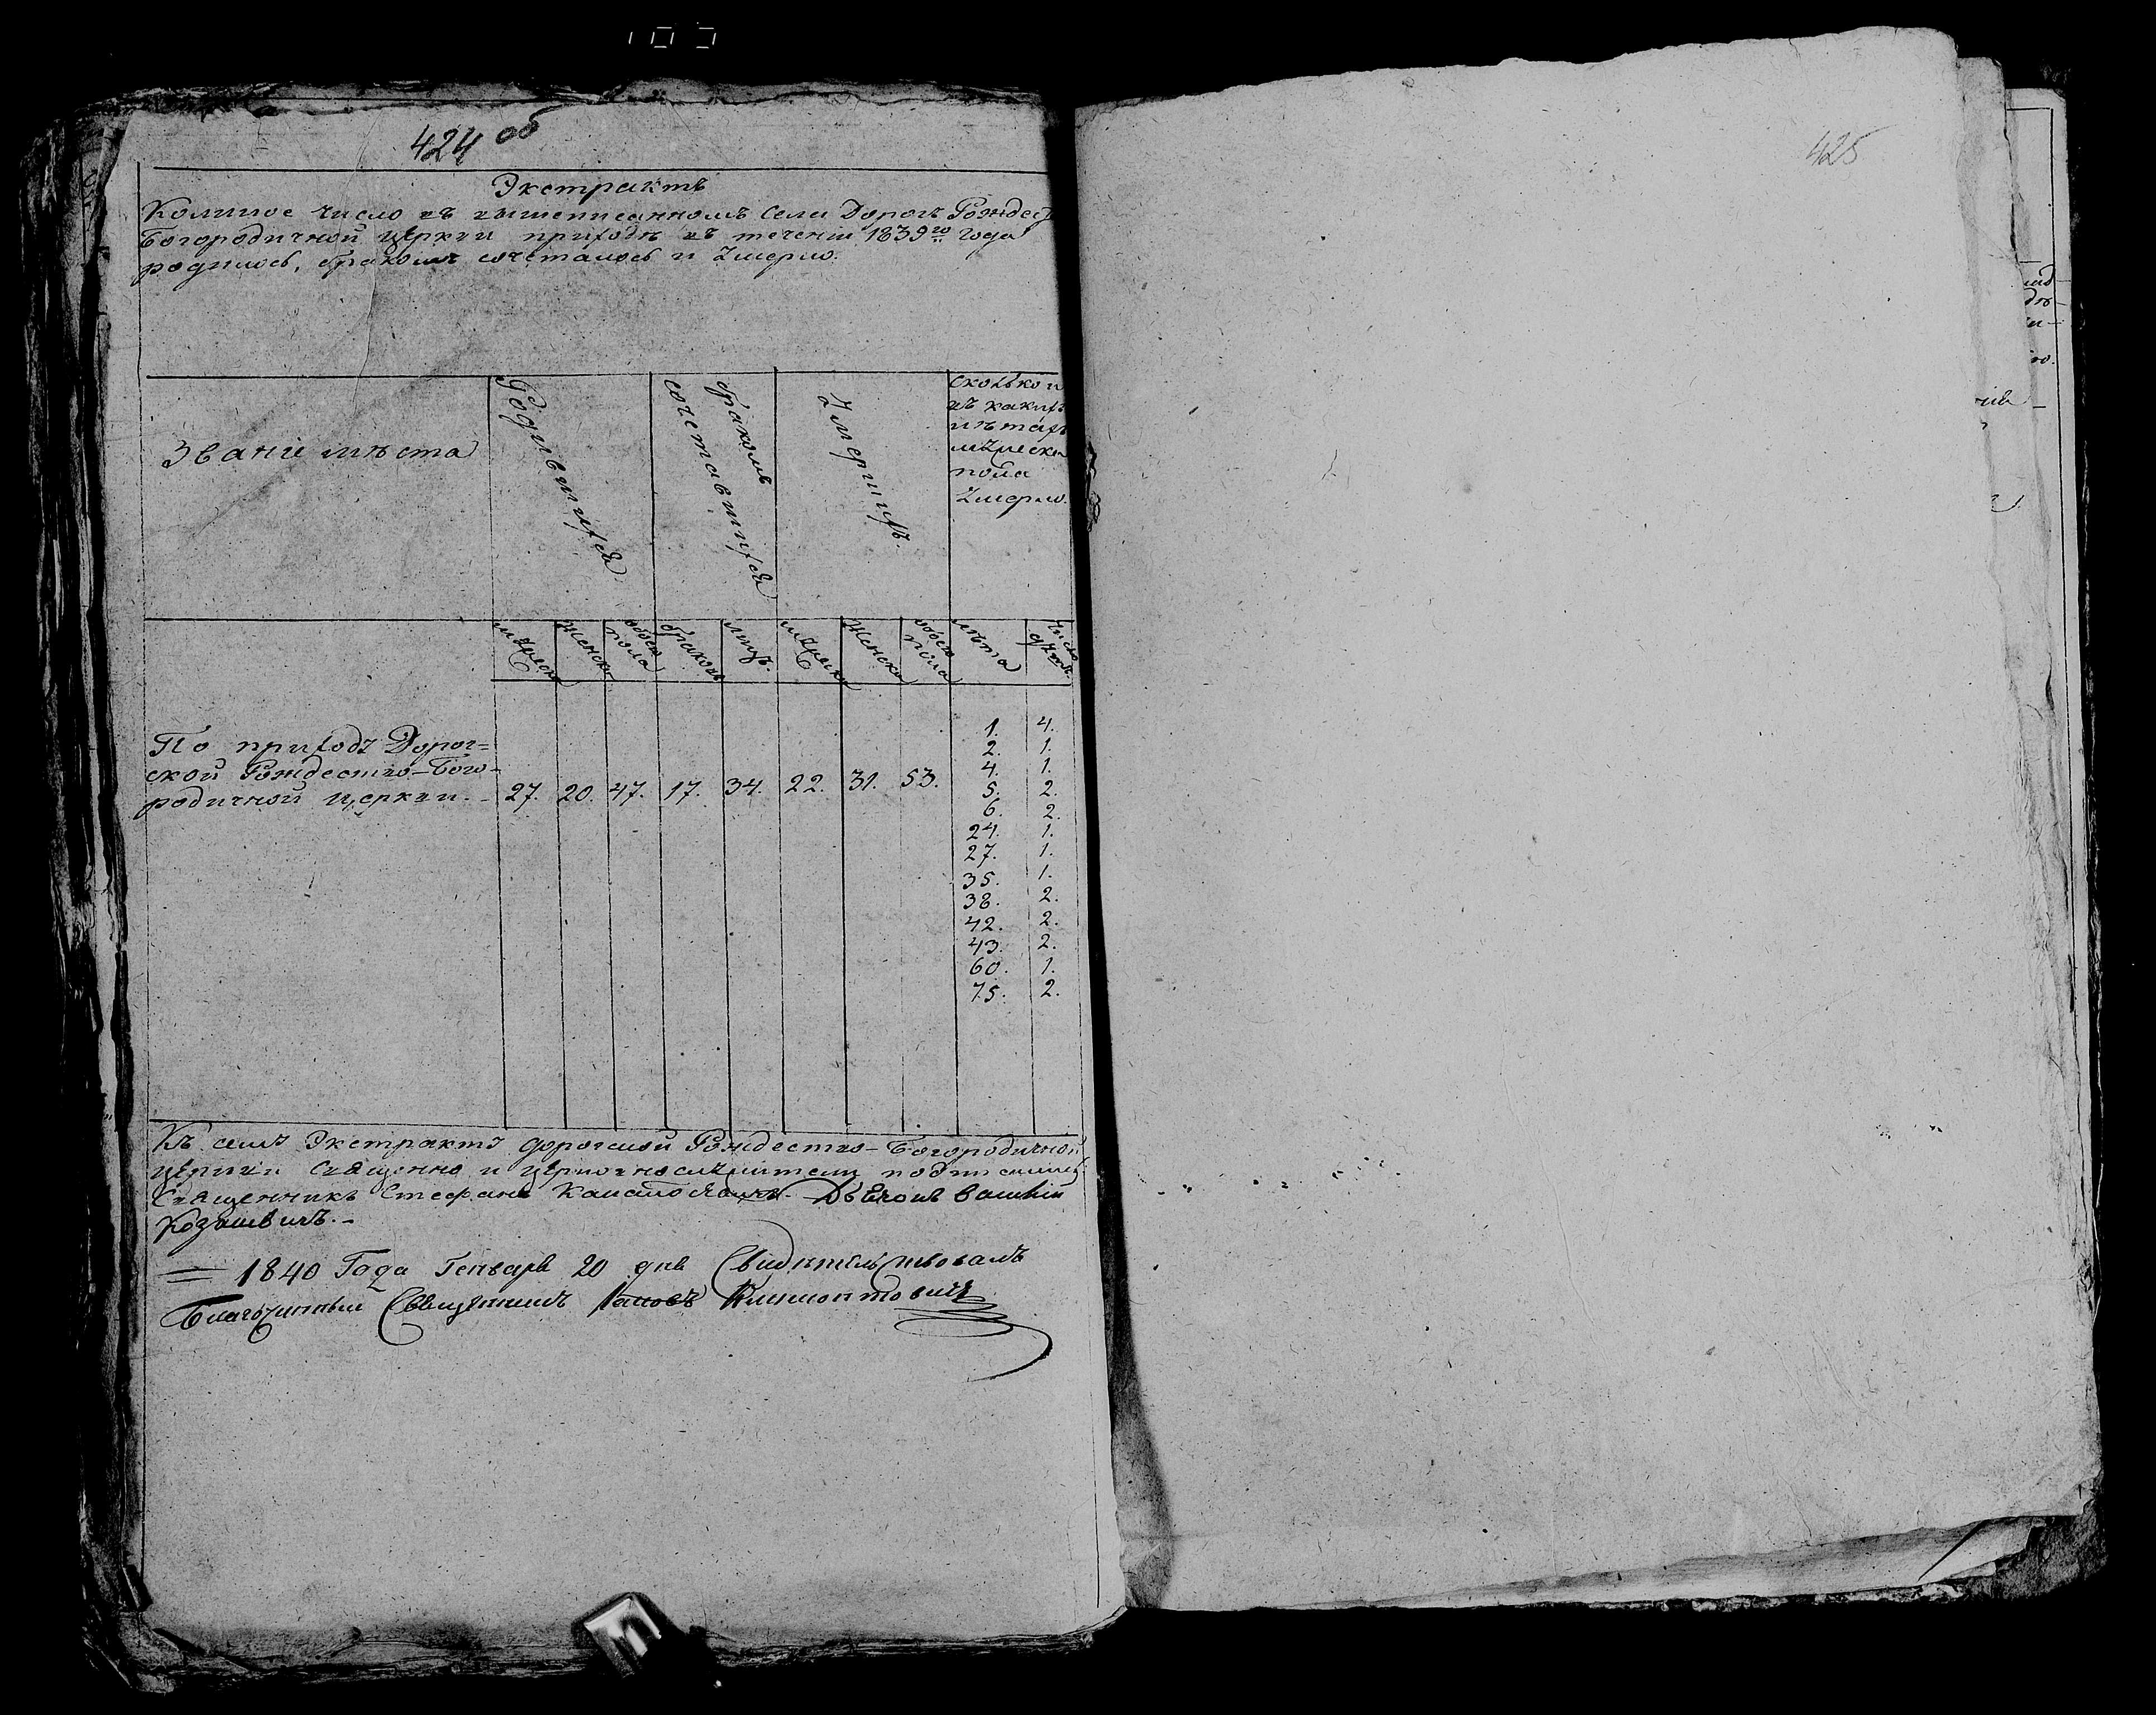 424 об
Экстрактъ
Коликое число въ вышеписанномъ селѣ Дорогъ Рождест
Богородичной церкви приходѣ въ теченіи 1839го года
родилось, бракомъ сочеталось и умерло.
Званіе мѣста
Родившихся
бракомъ
сочетавшихся
Умершихъ.
сколько и
въ какихъ
лѣтахъ
мужеска
пола
умерло.
мужеск
женска
обоего
пола
браковъ
лицъ.
мужеска
женска
обоего
пола
лѣта
число
душъ.
По приходу Дорог=
ской Рождество-Бого-
родичной церкви.- 27. 20. 47. 17. 34. 22. 31. 53.
1. 4.
2. 1.
4. 1.
5. 2.
6. 2.
24. 1.
27. 1.
35. 1.
38. 2.
42. 2.
43. 2.
60. 1.
75. 2.
Къ сему Экстракту Дорогской Рождество-Богородичной
церкви священно и церковнослужители подписались
Священникъ Стефанъ Дьячокъ
1840 Года Генваря 20 дня Свидѣтельствовалъ
Благочинный Священникъ Іаковъ Климонтовичъ
425